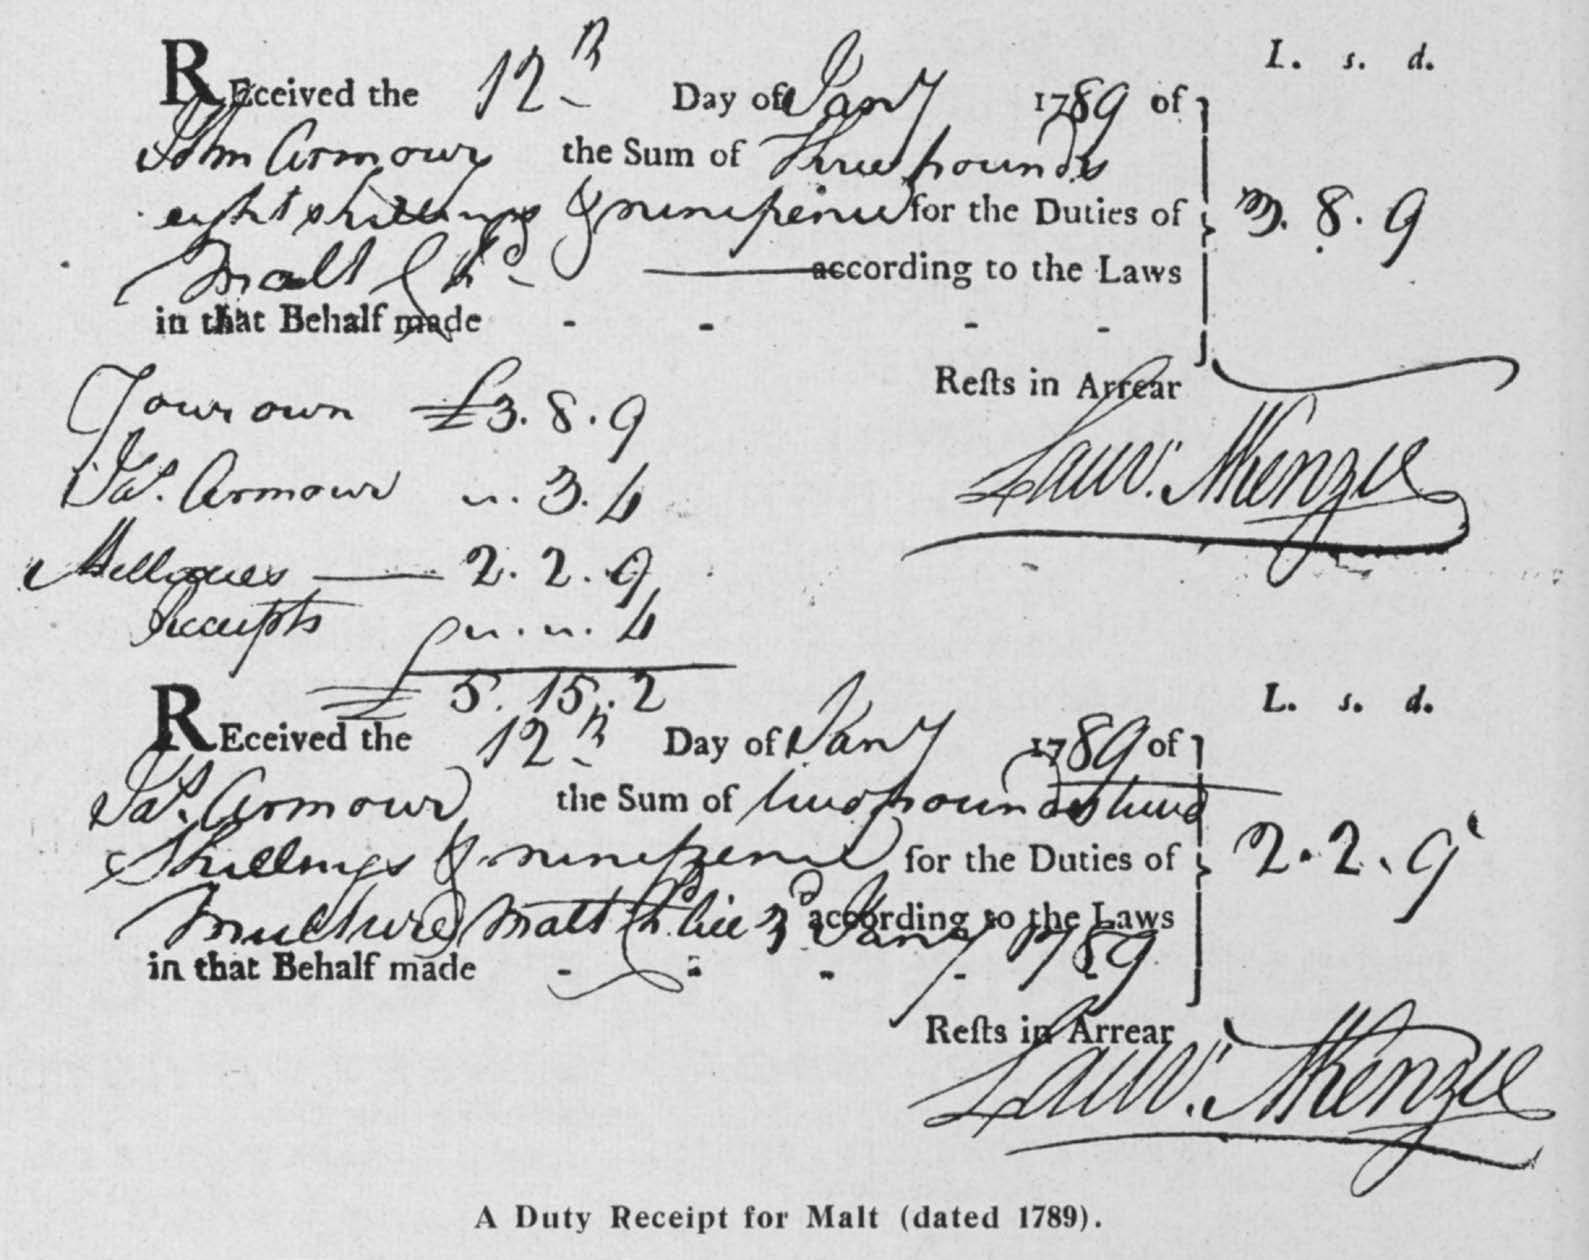 L. s. d.
REceived the 12th Day of Jany 1789 of
John Armour the Sum of Three pounds
eight shillings & ninepence for the Duties of 3. 8. 9
Malt according to the Laws
in that Behalf made - - - -
Rests in Arrear
Your own £3. 8. 9
Lawr. McKenzie
Jas. Armour ". 3. 4
2. 2. 9
Receipts ". ". 4
£ 5. 15. 2
L. s. d.
REceived the 12th Day of Jany 1789 of
Jas. Armour the Sum of two pounds two
Shillings & ninepence for the Duties of 2. 2. 9
Multure Malt 3d Jany 1789 according to the Laws
in that Behalf made - - - - -
Rests in Arrear
Lawr. McKenzie
A Duty Receipt for Malt (dated 1789).